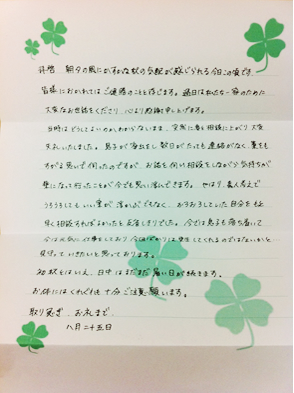 拝啓 朝夕の風にかすかな秋の気配が感じられる今日この頃です。
皆様におかれてはご健勝のことと存じます。過日は私たち一家のために
大変なお世話をくださり、心より感謝申し上げます。
当時はどうしてよいのかわからないまま、突然に妻と相談に上がり大変
失礼いたしました。息子が家出をし数日がたっても連絡がなく、藁をも
すがる思いで伺ったのですが、お話を伺い相談をしながら気持ちが
楽になって行ったことが今でも思い出してきます。やはり、素人考えで
うろうろしてもいい案が浮かぶでもなく、おろおろしていた自分をもっと
早く相談すればよかったと反省しきりでした。今では息子も落ち着いて
今は元気に仕事をしており、
見守っていきたいと思っております。
初秋とはいえ、日中はまだまだ暑い日が続きます。
お体にはくれぐれも十分ご注意願います。
取り急ぎ、お礼まで。
八月二十五日